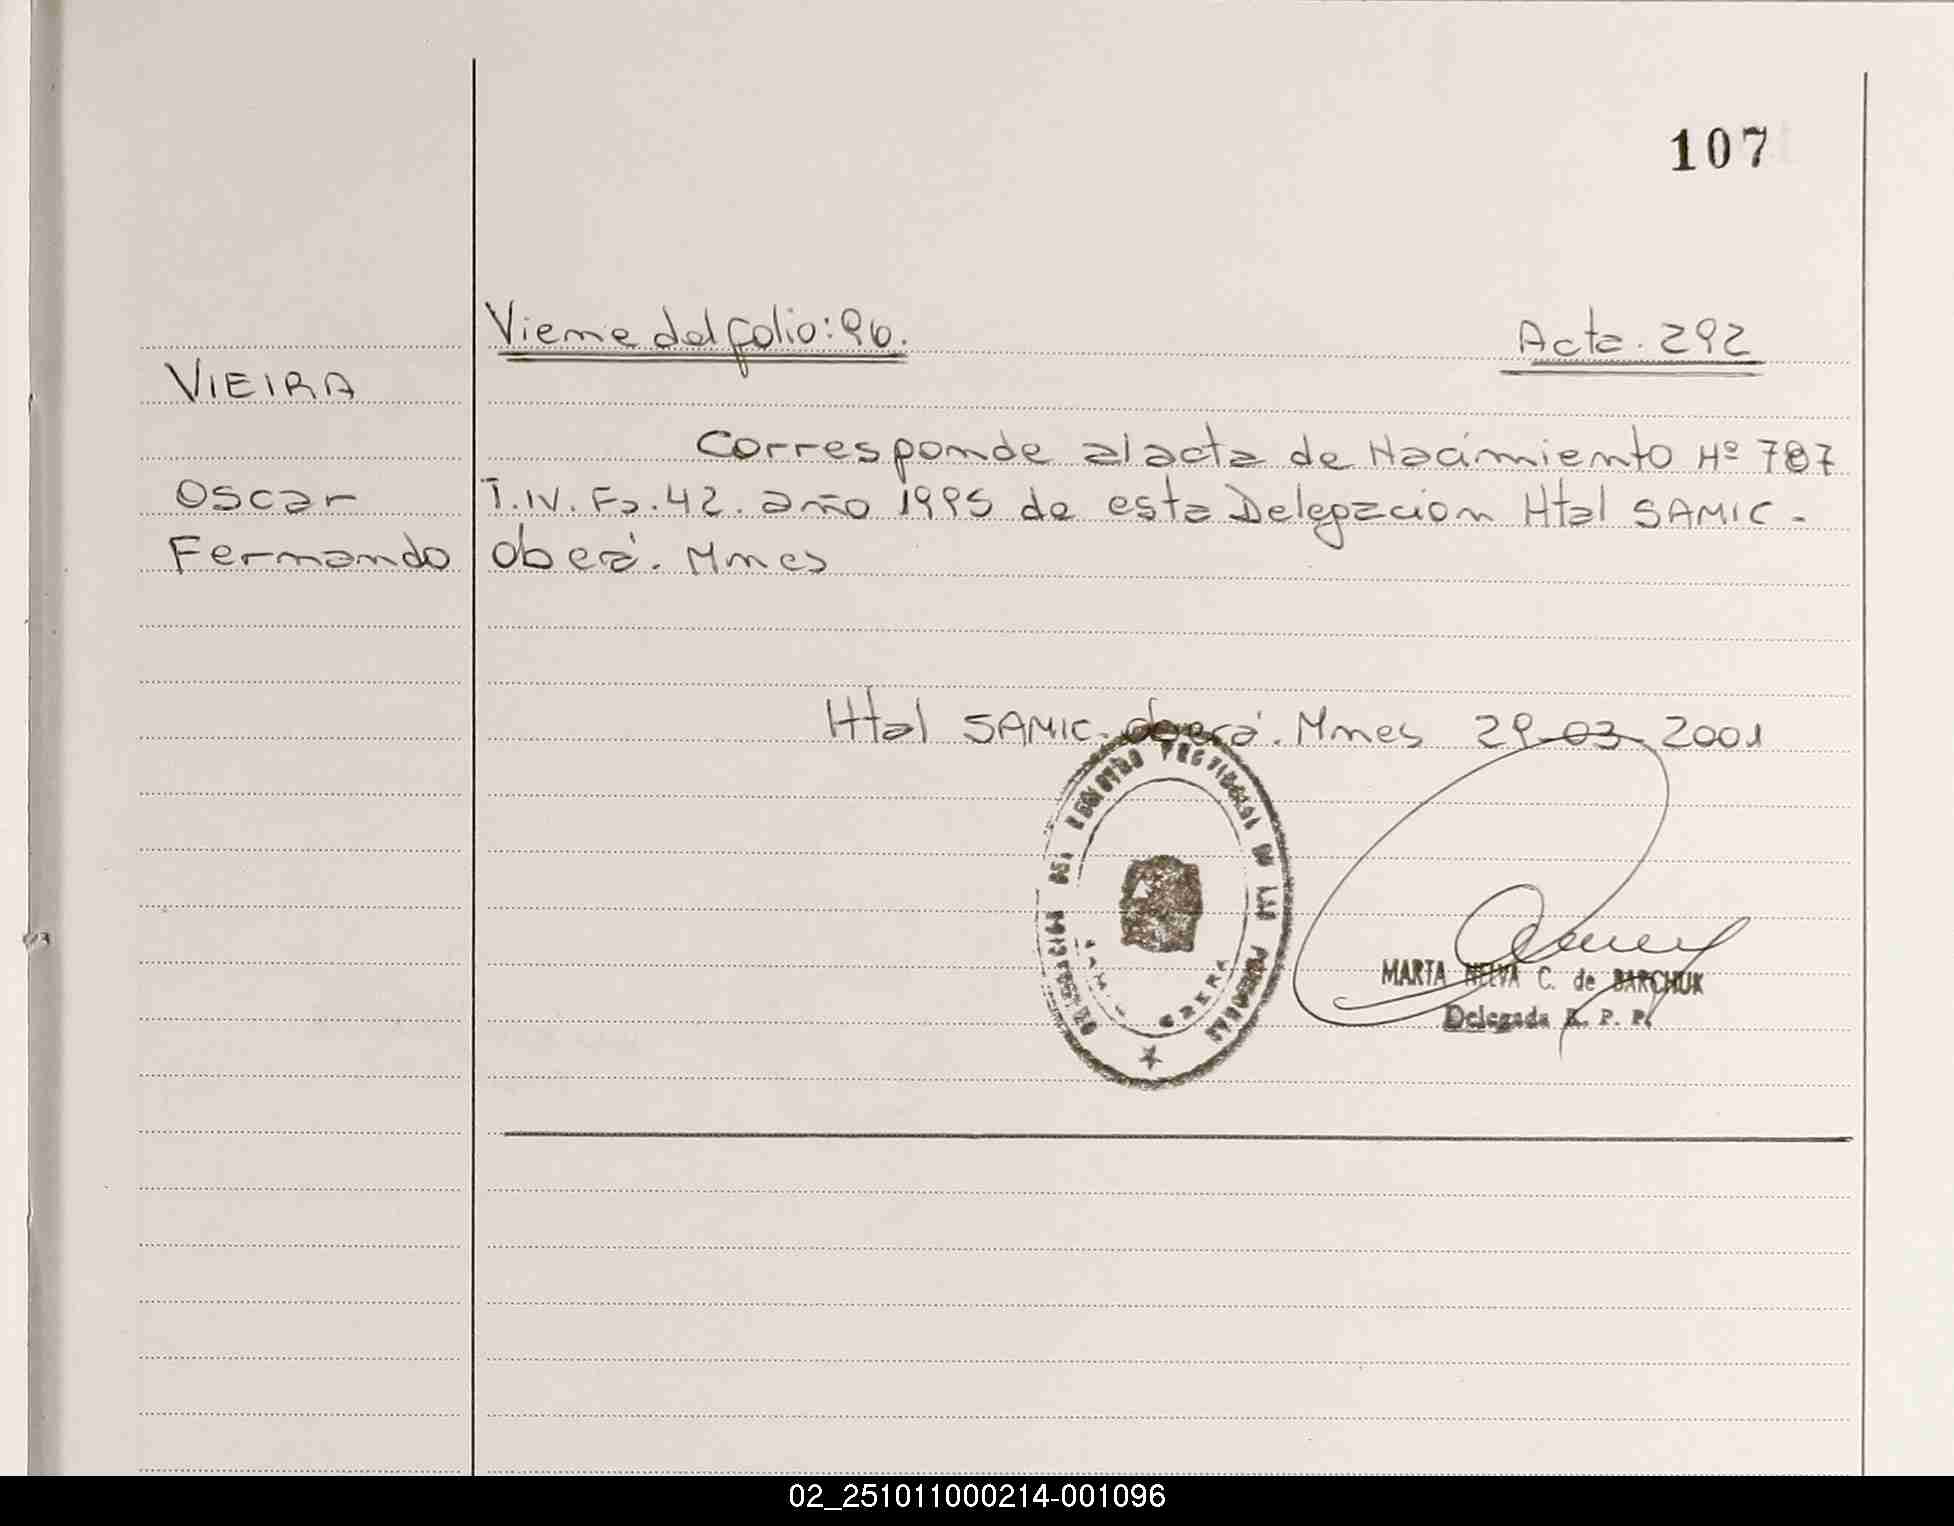 107
Viene del folio: 96.
Acta. 292
VIEIRA
Corresponde al acta de Nacimiento Nº 787
Oscar
T.IV. Fo. 42. año 1995 de esta Delegación Htal SAMIC.
Fernando
Oberá. Mnes
Htal SAMIC. Oberá. Mnes 29-03-2001
REGISTRO PROVINCIAL DE LAS PERSONAS
MARTA NELVA C. de BARCHUK
Delegada R. P. P.
02_251011000214-001096